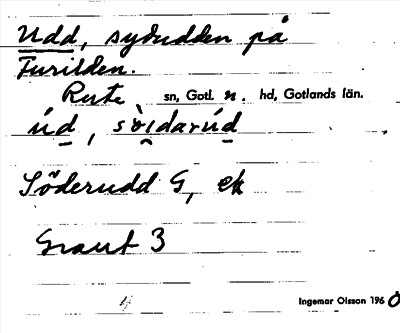 Udd, sydudden på
Furilden.
Rute sn, Gotl. n. hd, Gotlands län.
úd, sø̀ıdarúd
Söderudd G, ek
Graut 3
Ingemar Olsson 1960